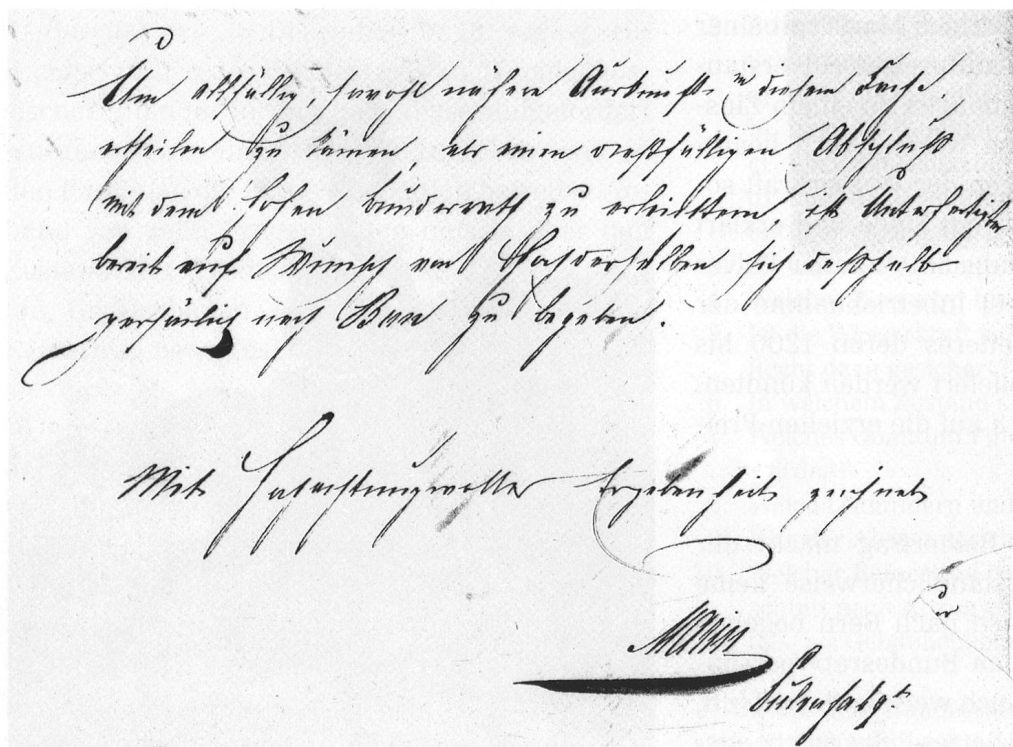 Um allfällig, sowohl nähere Auskunft in diesem Fache
ertheilen zu können als einen diessfälligen Abschluß
mit dem hohen Bundesrath zu erleichtern, ist Unterfertigter
bereit auf Wunsch von Hochderselben sich deßhalb
persönlich nach Bern zu begeben.
Mit Hochachtungsvoller Ergebenheit zeichnet